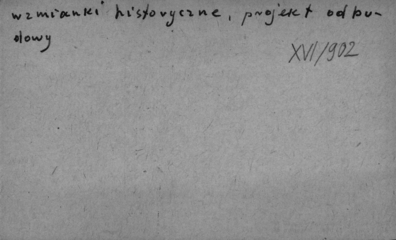 wzmianki historyczne, projekt odbu-
dowy
XVI/902